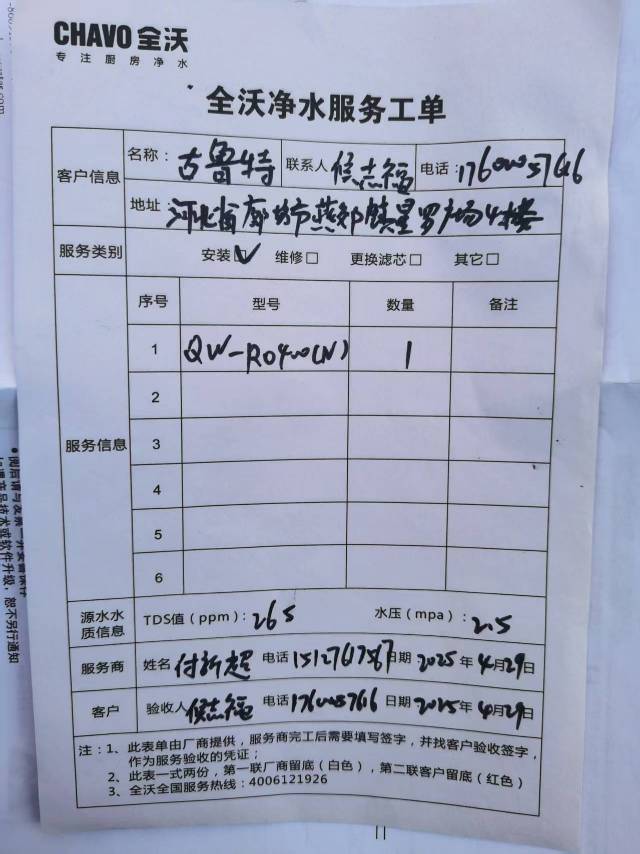 CHAVO 全沃
专注厨房净水
全沃净水服务工单
客户信息 名称：古鲁特 联系人 侯志福 电话：
地址 河北省廊坊市燕郊镇星罗广场4楼
服务类别 安装☑ 维修□ 更换滤芯□ 其它□
服务信息 序号 型号 数量 备注
1 QW-RO400(N) 1
2
3
4
5
6
源水水质信息 TDS值（ppm）：265 水压（mpa）：2.5
服务商 姓名 付新超 电话 日期 2025年4月29日
客户 验收人 侯志福 电话 日期 2025年4月29日
注：1、此表单由厂商提供，服务商完工后需要填写签字，并找客户验收签字，
作为服务验收的凭证；
2、此表一式两份，第一联厂商留底（白色），第二联客户留底（红色）
3、全沃全国服务热线：4006121926